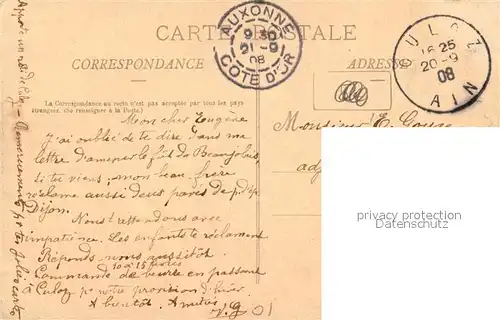 CARTE POSTALE
CORRESPONDANCE
ADRESSE
AUXONNE
9 30
21 -9
08
COTE D'OR
CULOZ
16 25
20 -9
08
AIN
La Correspondance au recto n'est pas acceptée par tous les pays
étrangers. (Se renseigner à la Poste.)
Mon cher Eugène
J'ai oublié de te dire dans ma
lettre d'amener le fût de Beaujolais
si tu viens; mon beau frère
réclame aussi deux pavés de p. d'ép.
Dijon.
Nous t'attendons avec
impatience. Les enfants te réclament
Réponds nous aussitôt
10 à 15 livres
Commande de beurre en passant
à Culoz pr notre provision d'hiver
A bientôt. Amitiés
Monsieur E.
adj
privacy protection
Datenschutz